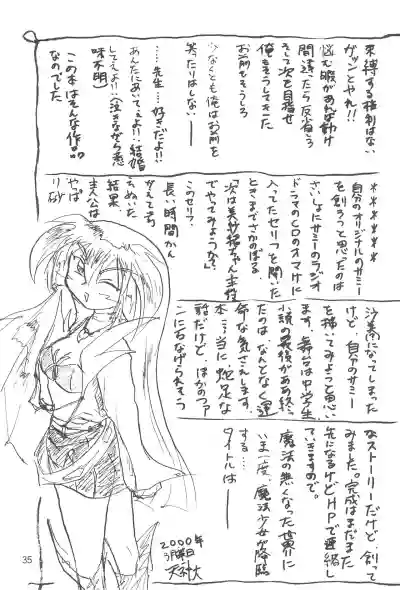 束縛する権利はない
ガツンとやれ!!
悩む暇があれば動け
間違たら反省しろ
そして次を目指せ
俺もそうしてきた
お前もそうしろ
少なくとも俺はお前を
笑たりはしない—
……先生…好きだよ!!
あんたにあいてぇよ!!…結婚
してえよ!!（泣きながら意
味不明）
この本はそんな作品
なのでした
＊＊＊＊＊＊
自分のオリジナルのサミー
を創ろうと思ったのは
さいしょにサミーのラジオ
ドラマのCDのオマケに
入ってたセリフを聞いた
ときまでさかのぼる
「次は美紗緒ちゃん主役
でやってみようか？」
このセリフ。
長い時間かん
がえてち
ゃぬいた
結果
主人公は
やっぱ
りな
沙美になってしまった
けど、自分のサミー
を描いてみようと思い
ます。舞台は中学生
小説の最後がああ終
たのはなんとなく運
命な気さえします。
本当に蛇足な
話だけど、ほかのファ
ンにもなげられそう
なストーリーだけど、創って
みました。完成はまだまた
先になるけどHPで連絡し
ていきますので。
魔法の無くなった世界に
いま一度、魔法少女が降臨
する…
タイトルは—
2000年
3月曜日
35